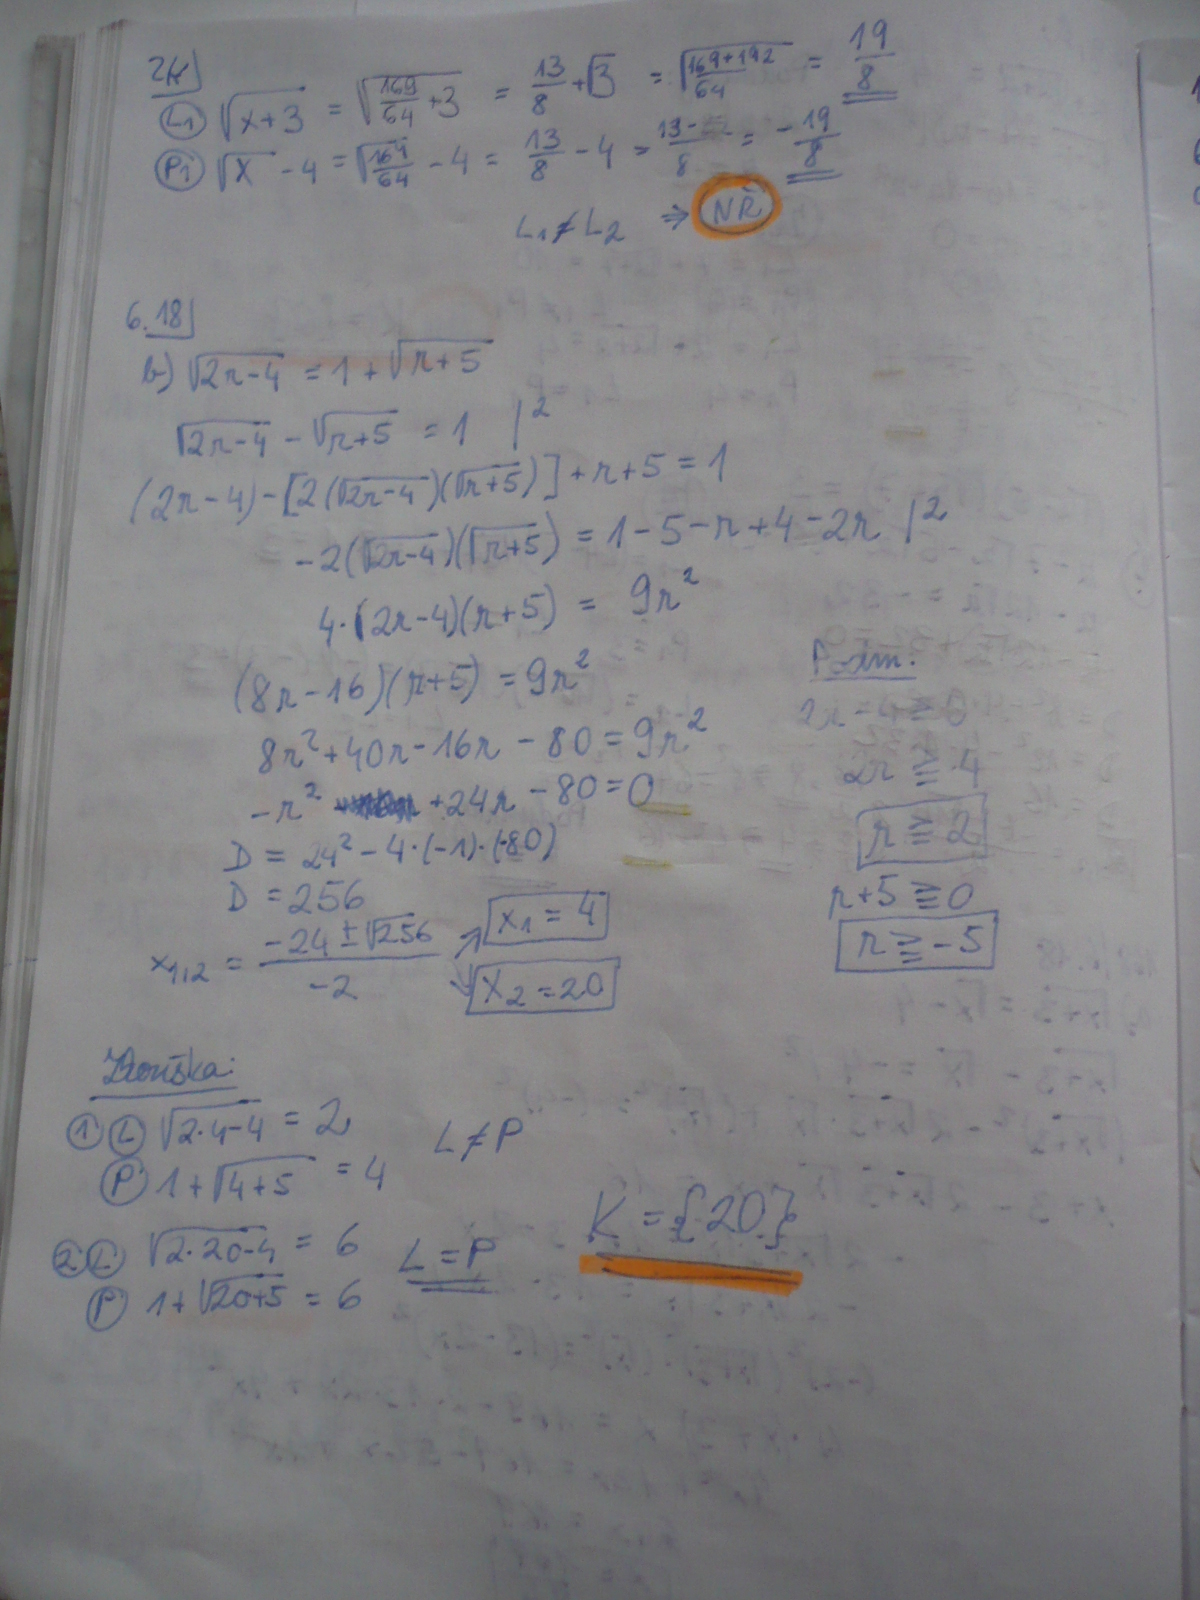 Zk
L₁ √(x+3) = √(169/64 + 3) = 13/8 + √3 = √((169+192)/64) = 19/8
P₁ √x - 4 = √(169/64) - 4 = 13/8 - 4 = = -19/8
L₁ ≠ L₂ ⇒ NŘ
6.18
b) √(2r-4) = 1 + √(r+5)
√(2r-4) - √(r+5) = 1 |²
(2r-4) - [2(√(2r-4))(√(r+5))] + r+5 = 1
-2(√(2r-4))(√(r+5)) = 1-5-r+4-2r |²
4·(2r-4)(r+5) = 9r²
(8r-16)(r+5) = 9r²
8r²+40r-16r-80=9r²
-r² +24r -80=0
D = 24² - 4·(-1)·(-80)
D = 256
x₁,₂ = (-24 ± √256)/-2
x₁ = 4
x₂ = 20
Podm:
2r-4 ≧ 0
2r ≧ 4
r ≧ 2
r+5 ≧ 0
r ≧ -5
Zkouška:
① L √(2·4-4) = 2
P 1+√(4+5) = 4
L ≠ P
② L √(2·20-4) = 6
P 1+√(20+5) = 6
L = P
K = {20}